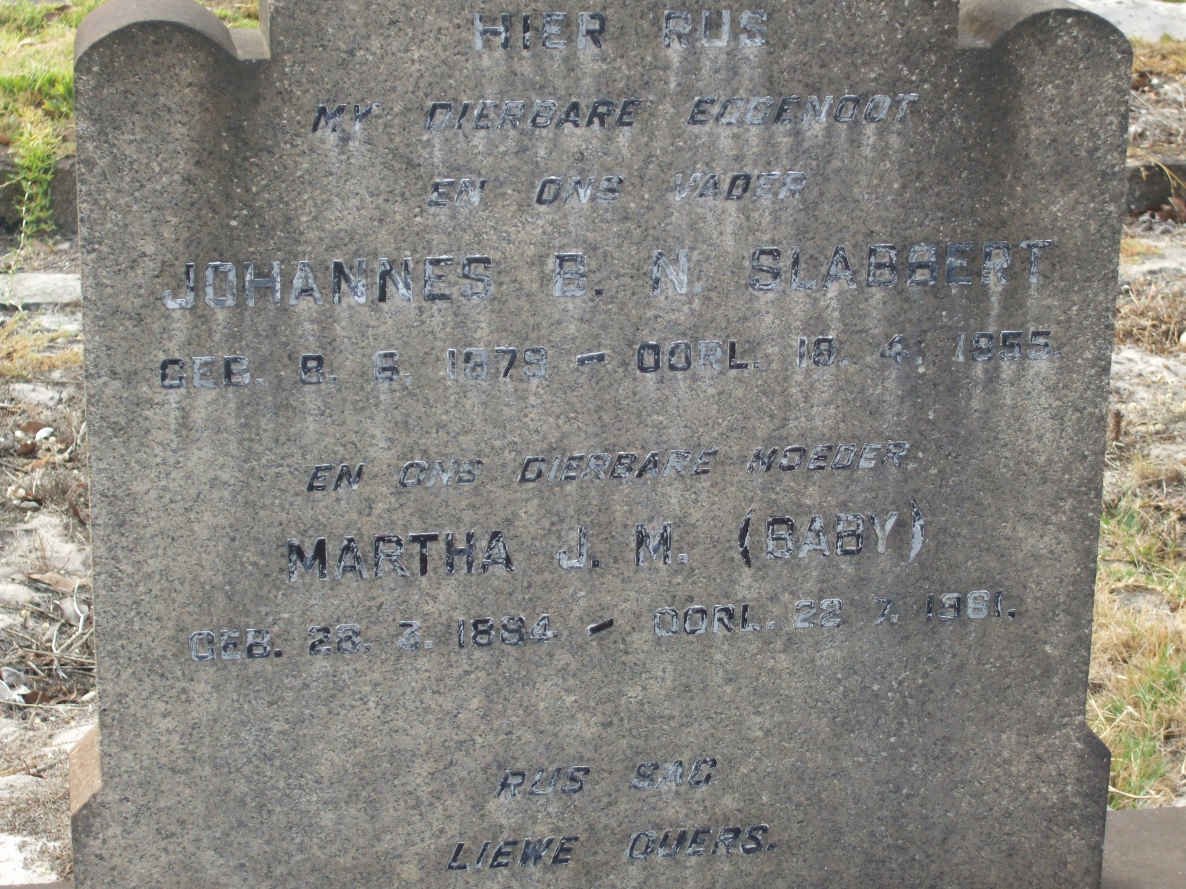 HIER RUS
MY DIERBARE EGGENOOT
EN ONS VADER
JOHANNES B. N. SLABBERT
GEB. 8. 6. 1879 - OORL. 18. 4. 1955.
EN ONS DIERBARE MOEDER
MARTHA J. M. (BABY)
GEB. 28. 3. 1884 - OORL. 22 7. 1961.
RUS SAG
LIEWE OUERS.